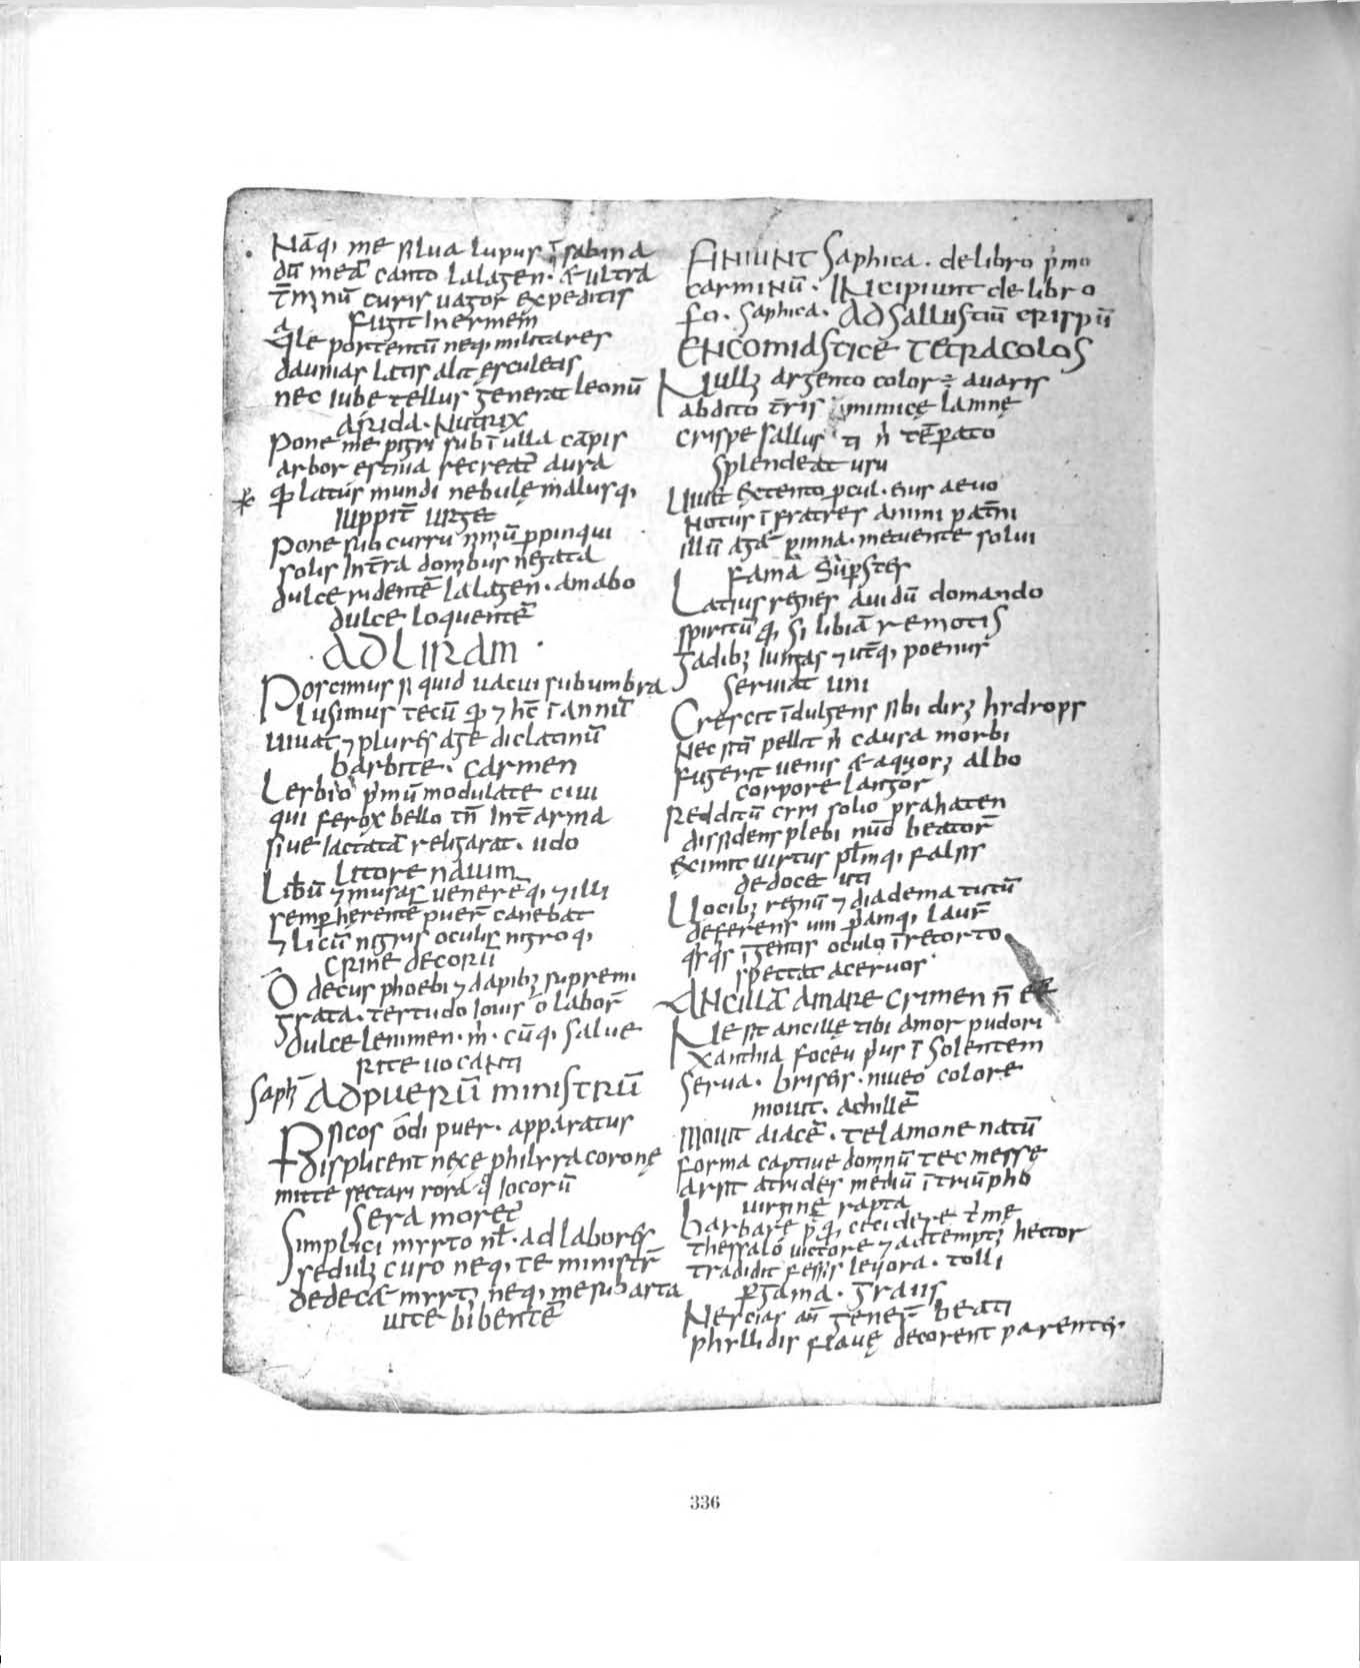 Nāq, me silua lupus ī sabina
dū meā canto lalagen · & ultra
t̄mınū curis uagor expeditis
fugit inermem
Q̄le portentū neq, militares
daunias latis alit ęsculetis
nec iube tellus generat leonū
arida · Nutrix
Pone me pigris ubī ulla cāpis
arbor estiua recreat̄ aura
qđ latus mundi nebulę malusq,
iuppit̄ urget
Pone sub curru nımiū ꝓpinqui
solis int̄ra domibus negata
dulce ridentē lalagen · amabo
dulce loquentē
· AD LIRAM ·
Poscimus si quid uacui sub umbra
lusimus tecū qđ ⁊ hc̄ ī annū
uiuat ⁊ plures age dic latinū
barbite · carmen
Lesbio p̍mū modulate ciui
qui ferox bello tn̄ int̄ arma
siue iactatā religarat · udo
litore nauim
Libū ⁊ musas uenerēq, ⁊ illi
semꝑ herentē puer̄ canebat
⁊ licū nigris oculis nigroq,
crine decorū
O decus phoebi ⁊ dapibꝫ supremi
grata · testudo iouis ō labor̄
dulce lenimen · m̍ · cūq, salue
rite uocanti
Saph̄ AD PUERŪ MINISTRŪ
Psicos ōdi puer · apparatus
displicent nexe philyra coronę
mitte sectari rosa q̊ locorū
sera moret̄
Simplici myrto nl̄ · adlabores
sedulꝫ curo neq, te ministr̄
dedecā myrtꝫ neq, me sub arta
uite bibentē
FINIUNT Saphica · de libro p̍mo
carminū · INcipiunt de libro
sc̄o · saphica · AD Sallustiū crispū
ENCOMIASTICE TETRACOLOS
Nullꝫ argento color ÷ auaris
abdito t̄ris inimicę lamnę
crispe sallusti n̍ tēꝑato
splendeat usu
Uiuet extento ꝓcul · eius aeuo
notus ī fratres animi pat̄ni
illū aget pinna · metuente solui
fama suꝑstes
Latius regnes auidū domando
spiritū q, si libiā remotis
gadibꝫ iungas ⁊ ut̄q, poenus
seruiat uni
Crescit īdulgens sibi dirꝫ hydrops
nec sitī pellit n̍ causa morbi
fugerit uenis & aquosꝫ albo
corpore langor
Redditū cyri solio prahaten
dissidens plebi nūo beator̄
eximit uirtus pl̄mq, falsis
dedocet uti
Uocibꝫ regnū ⁊ diadema tutū
deferens uni ꝓpiamq, laur̄
qsqs īgentis oculo īretorto
spectat aceruos
ANCILLĀ AMARE crimen n̄ eē
Ne sit ancille tibi amor pudori
xanthia foceu p̍us ī solentem
serua · briseis · niueo colore
mouit · achillē
Mouit aiacē · telamone natū
forma captiue dominū tecmesse
arsit atrides mediū ī triūpho
uirgine rapta
barbare p̍q, cecidere t̍me
thessalo uictore ⁊ ademptꝫ hector
tradidit fessis leuiora · tolli
ꝑgama · graiis
Nescias an̄ gener̄ beati
phyllidis flauę decorent parentes
336